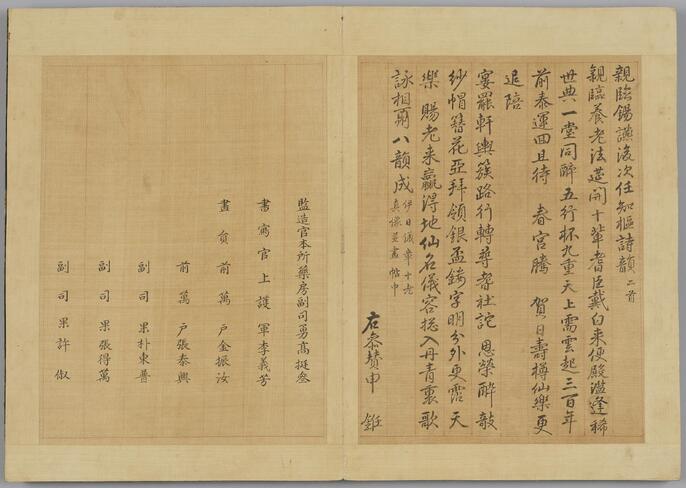 親臨錫讌後次任知樞詩韻 二首
親臨養老法筵開十輩耆臣戴白來便殿濫逢稀
世典一堂同醉五行杯九重天上需雲起三百年
前泰運回且待 春宮騰 賀日壽樽仙樂更
追陪
宴罷軒輿簇路行轉尋耆社詫 恩榮醉敲
紗帽簪花亞拜領銀盃鏤字明分外更霑 天
樂 賜老來贏得地仙名儀容摠入丹青裏歌
詠相酬八韻成 伊日儀章十老
真像並畫帖中
右參贊申 銋
監造官本所藥房副司勇高挺參
書寫官上護軍李義芳
畫員前萬戶金振汝
前萬戶張泰興
副司果朴東普
副司果張得萬
副司果許俶